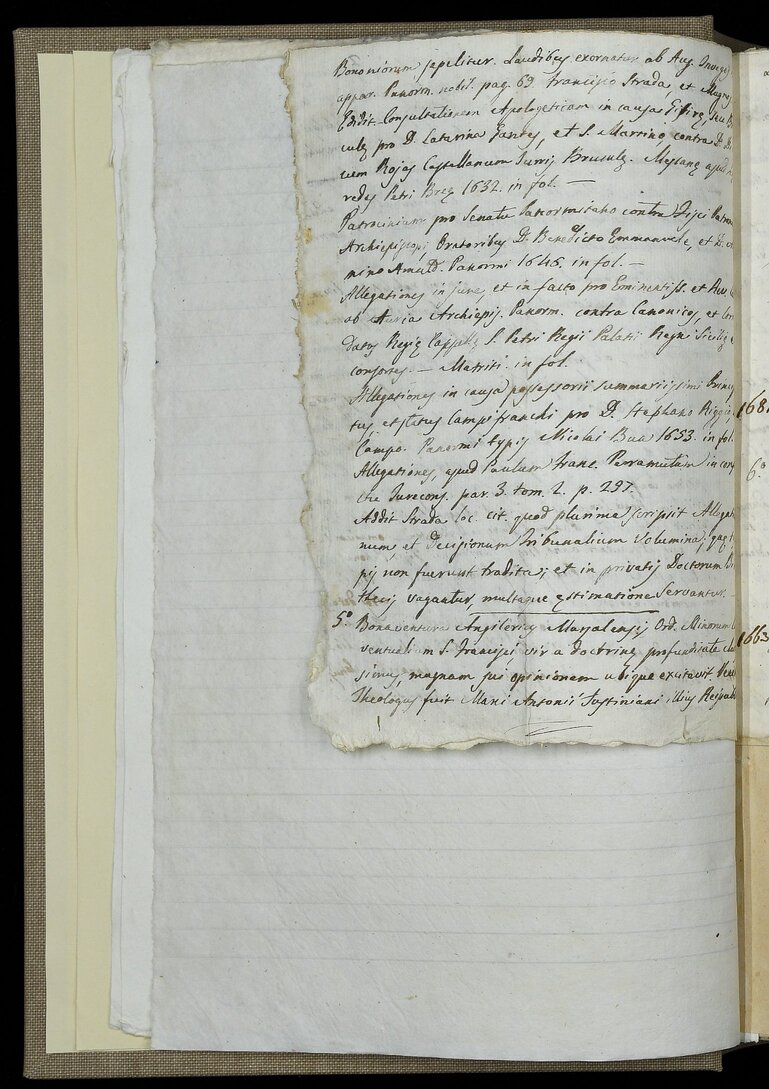 Bononiorum sepelitur. Laudibus exornatur ab Aug.
appar. Panorm. nobil. pag. 69. Francisco Strada, et
Edidit Consultationem Apologeticam in causa
pro D. Catarina et S. Martino contra D.
Rojas Castellanum Messanę apud
redes Petri Breę 1632. in fol. —
Patrocinium pro Senatu Panormitano contra Fisci
Archiepiscopi Oratoribus D. Benedicto Emmanuele, et D.
nino Amald. Panormi 1646. in fol. —
Allegationes in jure, et in facto pro Eminentiss. et Rev.
ab Auria Archiepis. Panorm. contra Canonicos, et
Regię Cappellę S. Petri Regii Palatii Regni Sicilię
consortes. — Matriti. in fol.
Allegationes in causa possessorii summariissimi
tus, et status Campifranchi pro D. Stephano Riggio,
Campo. Panormi typis Nicolai Bua 1653. in fol.
Allegationes, apud Paulum Franc. Perramutum in
che Jurecons. par. 3. tom. 2. p. 297.
Addit Strada loc. cit. quod plurima scripsit
num, et Decisionum Tribunalium Volumina,
pis non fuerunt tradita; et in privatis Doctorum
thecis vagantur, multaque ęstimatione servantur.
5.° Bonaventura Angilerius Marsalensis Ord. Minorum
ventualium S. Francisci, vir a doctrinę profunditate
simus, magnam sui opinionem ubique excitavit.
Theologus fuit Marci Antonii Justiniani illius
168
6.°
1663